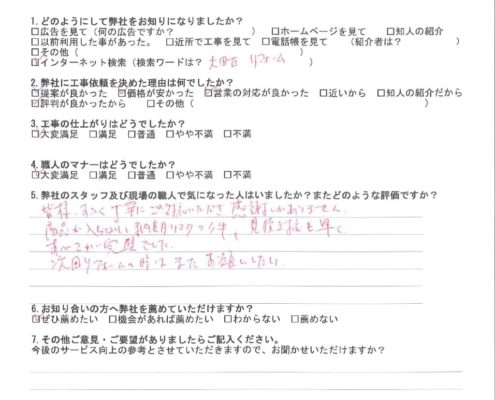 1. どのようにして弊社をお知りになりましたか?
□広告を見て(何の広告ですか? ) □ホームページを見て □知人の紹介
□以前利用した事があった。 □近所で工事を見て □電話帳を見て (紹介者は? )
□その他( )
☑インターネット検索(検索ワードは? 大田区 リフォーム )
2. 弊社に工事依頼を決めた理由は何でしたか?
☑提案が良かった ☑価格が安かった ☑営業の対応が良かった □近いから □知人の紹介だから
☑評判が良かったから □その他( )
3. 工事の仕上がりはどうでしたか?
☑大変満足 □満足 □普通 □やや不満 □不満
4. 職人のマナーはどうでしたか?
☑大変満足 □満足 □普通 □やや不満 □不満
5. 弊社のスタッフ及び現場の職人で気になった人はいましたか?またどのような評価ですか?
皆様、すごく丁寧に 感謝しかありません。
商品が 見積 も早く、
すべてが完璧でした。
次回リフォームの時はまたお願いしたい。
6. お知り合いの方へ弊社を薦めていただけますか?
☑ぜひ薦めたい □機会があれば薦めたい □わからない □薦めない
7. その他ご意見・ご要望がありましたらご記入ください。
今後のサービス向上の参考とさせていただきますので、お聞かせいただけますか?